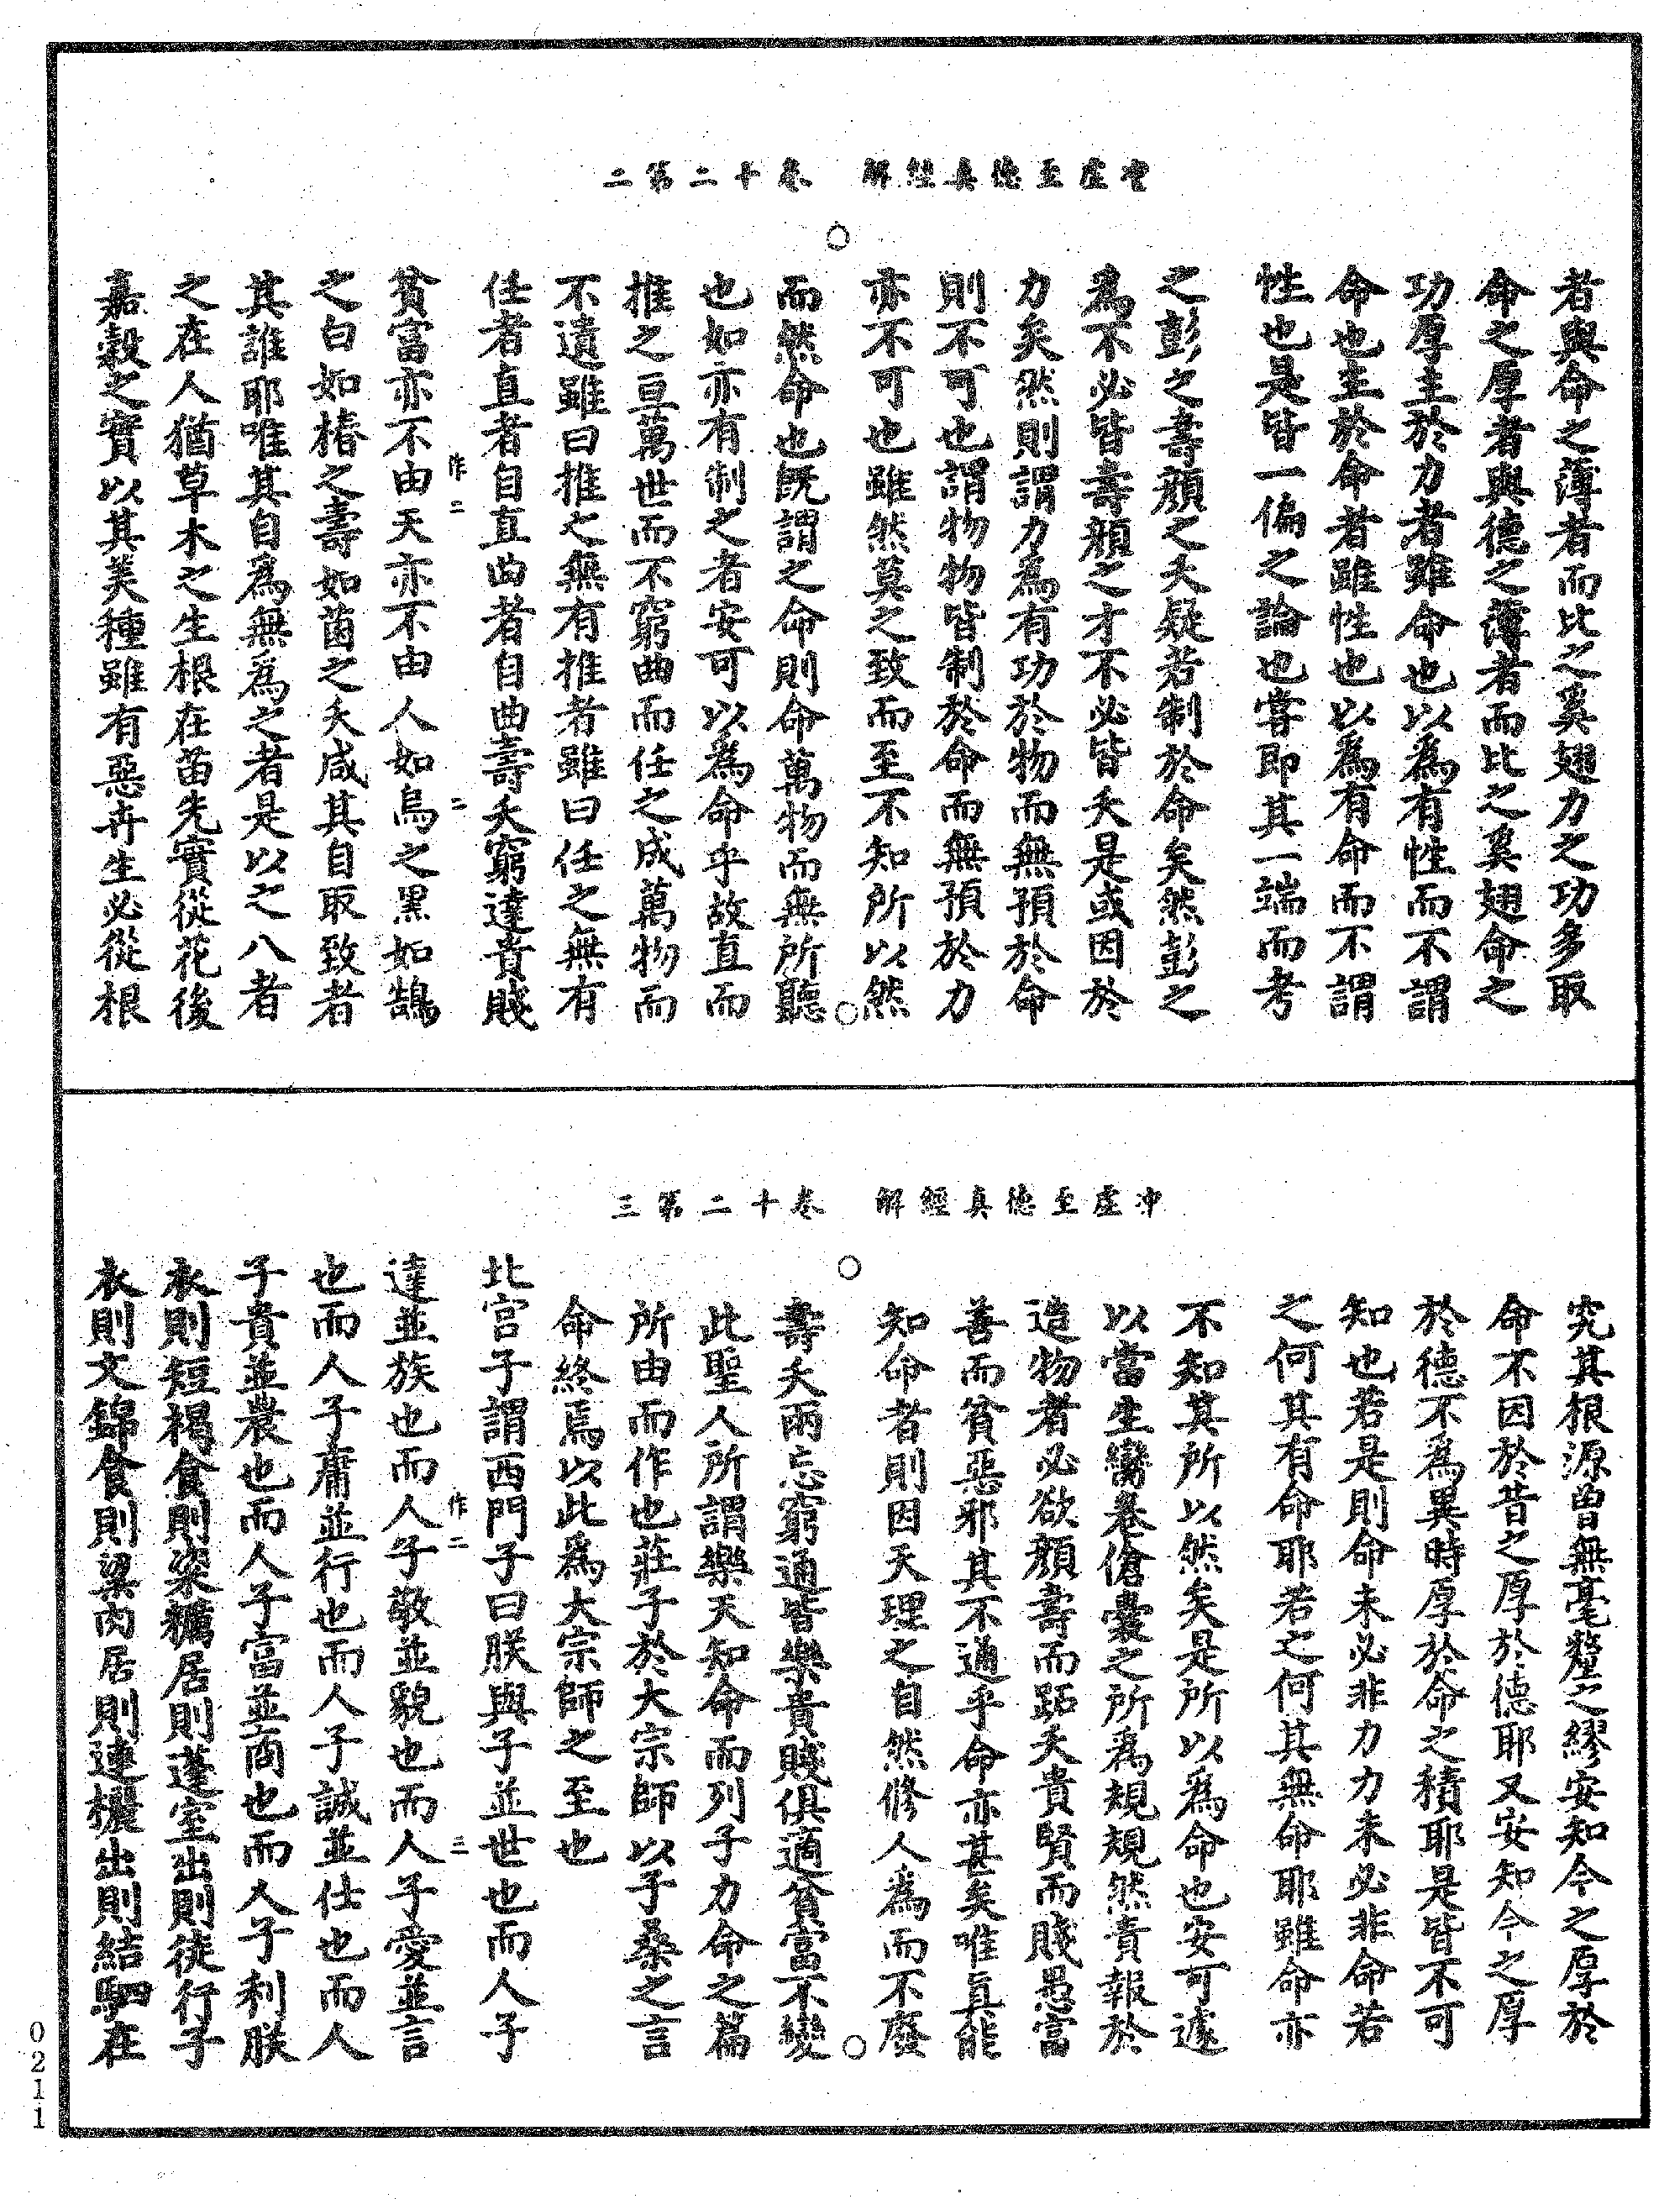 沖虛至德真經解 卷十二第二
者與命之薄者而比之奚翅力之功多取
命之厚者與德之薄者而比之奚翅命之
功厚主於力者雖命也以為有性而不謂
命也主於命者雖性也以為有命而不謂
性也是皆一偏之論也嘗即其一端而考
之彭之壽顏之夭疑若制於命矣然彭之
為不必皆壽顏之才不必皆夭是或因於
力矣然則謂力為有功於物而無預於命
則不可也謂物物皆制於命而無預於力
亦不可也雖然莫之致而至不知所以然
而然命也既謂之命則命萬物而無所聽
也如亦有制之者安可以為命乎故直而
推之亘萬世而不窮曲而任之成萬物而
不遺雖曰推之無有推者雖曰任之無有
任者直者自直曲者自曲壽夭窮達貴賤
作二 二
貧富亦不由天亦不由人如烏之黑如鵠
之白如椿之壽如菌之夭咸其自取致者
其誰耶唯其自為無為之者是以之八者
之在人猶草木之生根在苗先實從花後
嘉穀之實以其美種雖有惡卉生必從根
沖虛至德真經解 卷十二第三
究其根源曾無毫釐之繆安知今之厚於
命不因於昔之厚於德耶又安知今之厚
於德不為異時厚於命之積耶是皆不可
知也若是則命未必非力力未必非命若
之何其有命耶若之何其無命耶雖命亦
不知其所以然矣是所以為命也安可遽
以當生臠卷傖囊之所為規規然責報於
造物者必欲顏壽而跖夭貴賢而賤愚富
善而貧惡邪其不通乎命亦甚矣唯真能
知命者則因天理之自然修人為而不廢
壽夭兩忘窮通皆樂貴賤俱適貧富不變
此聖人所謂樂天知命而列子力命之篇
所由而作也莊子於大宗師以子桑之言
命終焉以此為大宗師之至也
北宮子謂西門子曰朕與子並世也而人子
作二 三
達並族也而人子敬並貌也而人子愛並言
也而人子庸並行也而人子誠並仕也而人
子貴並農也而人子富並商也而人子利朕
衣則短褐食則粢糲居則蓬室出則徒行子
衣則文錦食則粱肉居則連欐出則結駟在
0211